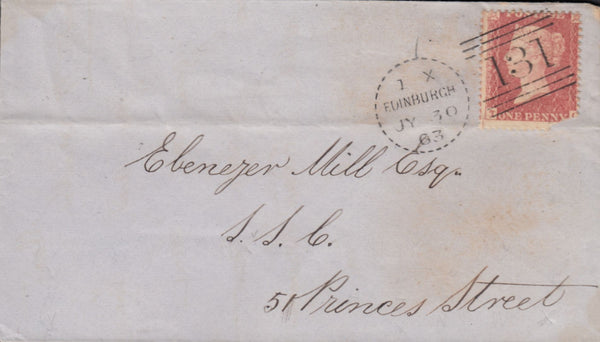 131
ONE PENNY
1 X
EDINBURGH
JY 30
63
Ebenezer Mill Esqr
S. S. C.
51 Princes Street